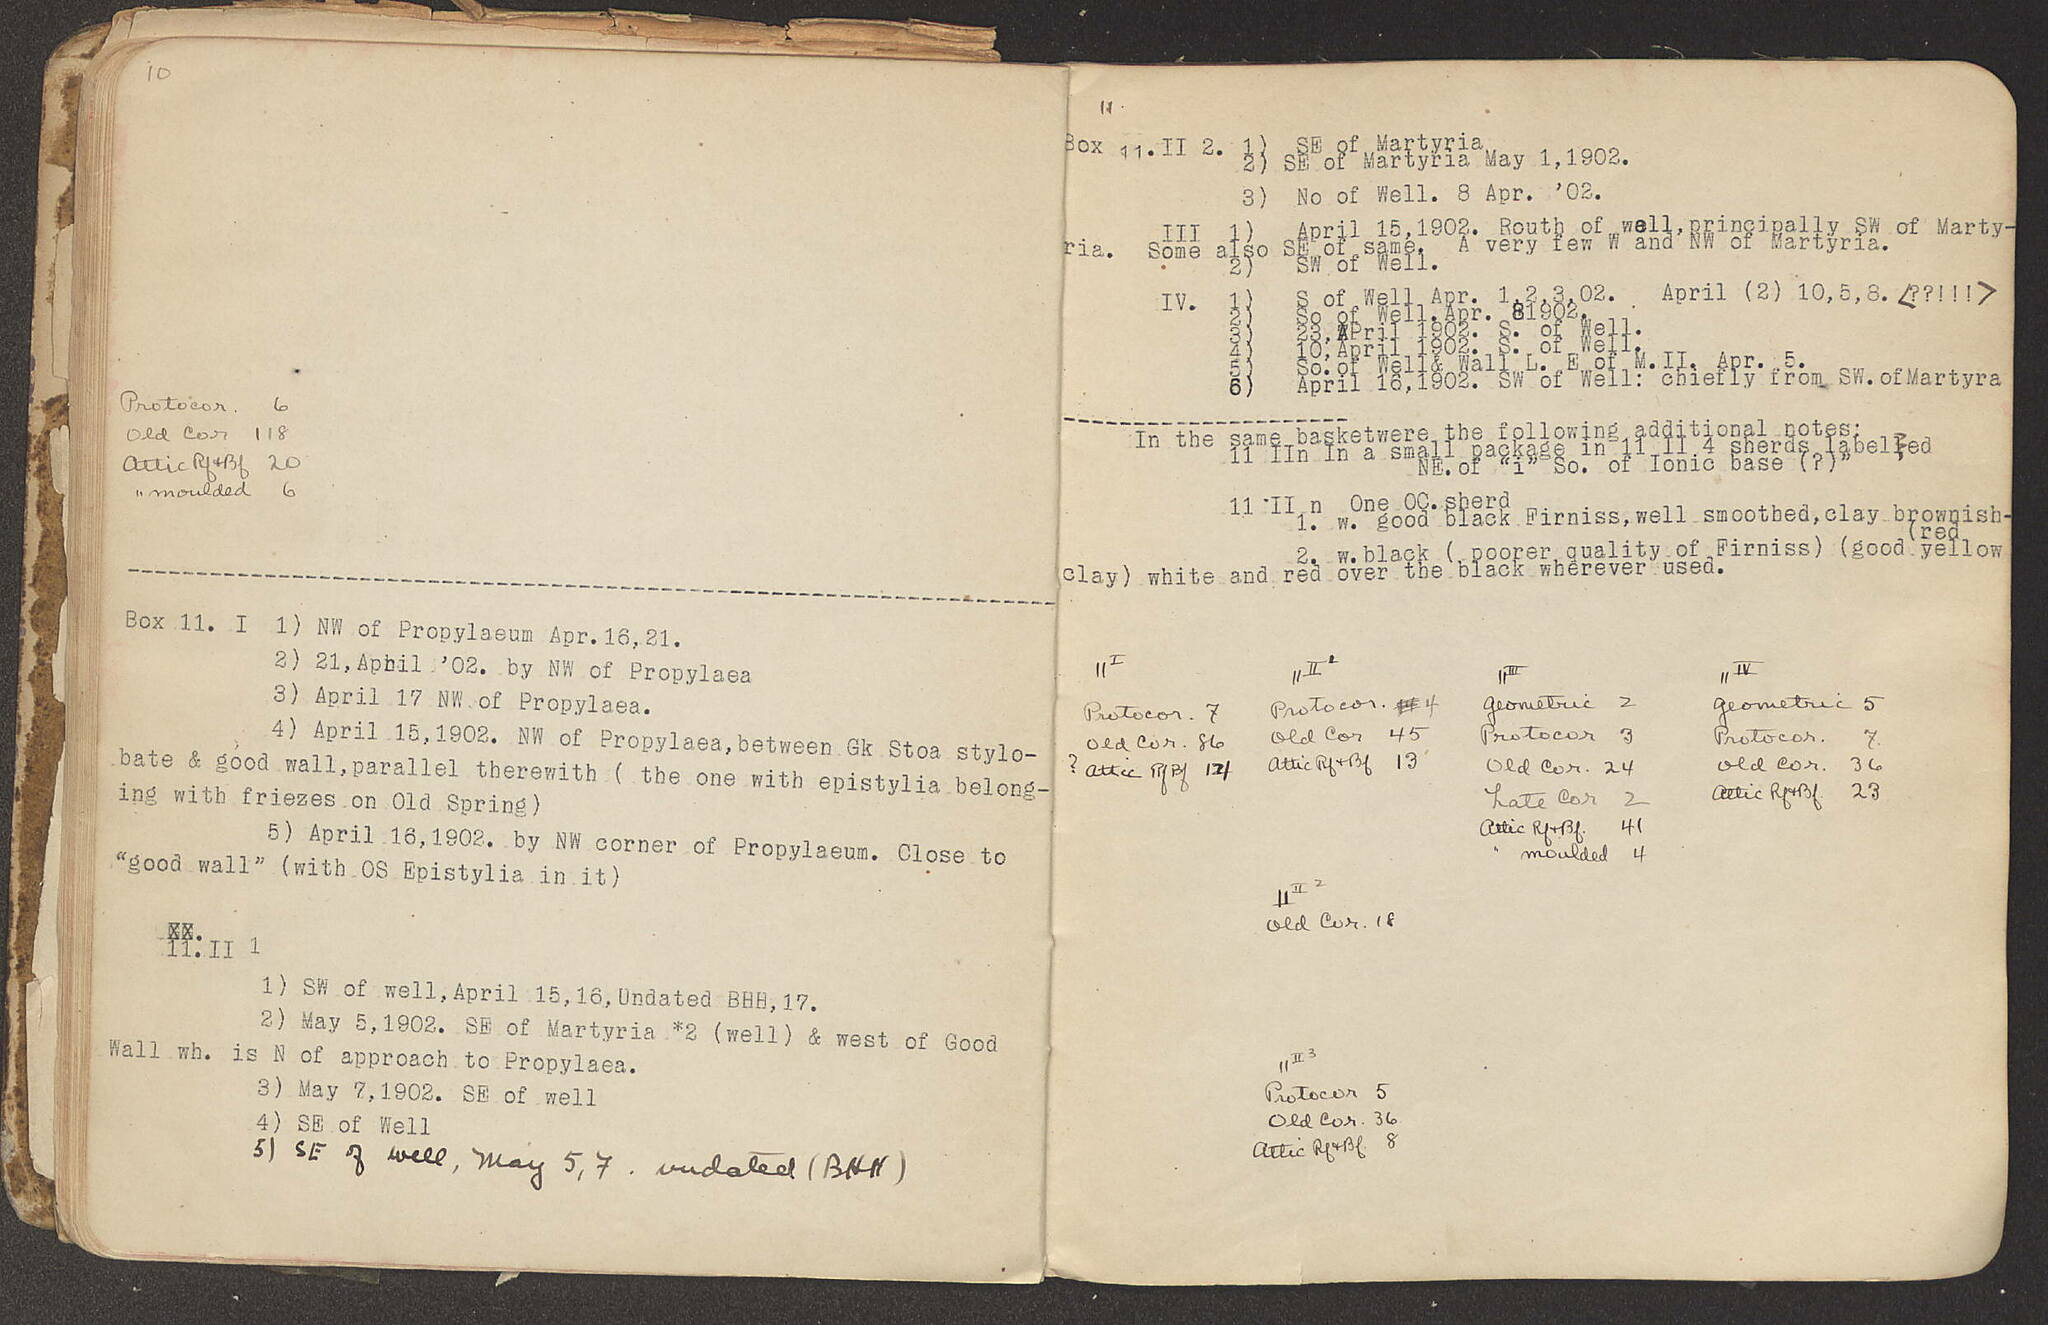 10
Protocor. 6
Old Cor 118
Attic Rf+Bf 20
" moulded 6
Box 11. I 1) NW of Propylaeum Apr.16,21.
2) 21,Aphil '02. by NW of Propylaea
3) April 17 NW of Propylaea.
4) April 15,1902. NW of Propylaea,between Gk Stoa stylo-
bate & good wall,parallel therewith ( the one with epistylia belong-
ing with friezes on Old Spring)
5) April 16,1902. by NW corner of Propylaeum. Close to
“good wall” (with OS Epistylia in it)
XX.
11.II 1
1) SW of well,April 15,16,Undated BHH,17.
2) May 5,1902. SE of Martyria *2 (well) & west of Good
Wall wh. is N of approach to Propylaea.
3) May 7,1902. SE of well
4) SE of Well
5) SE of well, May 5,7. undated (BHH)
11.
Box 11.II 2. 1) SE of Martyria
2) SE of Martyria May 1,1902.
3) No of Well. 8 Apr. '02.
III 1) April 15,1902. Routh of well,principally SW of Marty-
ria. Some also SE of same. A very few W and NW of Martyria.
2) SW of Well.
IV. 1) S of Well Apr. 1,2,3,02. April (2) 10,5,8. <??!!!>
2) So of Well.Apr. 81902.
3) 23,April 1902. S. of Well.
4) 10,April 1902. S. of Well.
5) So.of Well& Wall L. E of M.II. Apr. 5.
6) April 16,1902. SW of Well: chiefly from SW.ofMartyra
In the same basketwere the following additional notes:
11 IIn In a small package in 11 II 4 sherds labelled
NE.of “i” So. of Ionic base (?)”
11 II n One OC.sherd
1. w. good black Firniss,well smoothed,clay brownish-
(red
2. w.black ( poorer quality of Firniss) (good yellow
clay) white and red over the black wherever used.
11 I
Protocor. 7
Old Cor. 86
? Attic Rf Bf
11 II 2
Protocor. 4
Old Cor 45
Attic Rf+Bf 13
11 III
Geometric 2
Protocor 3
Old Cor. 24
Late Cor 2
Attic Rf+Bf. 41
" moulded 4
11 IV
Geometric 5
Protocor. 7
Old Cor. 36
Attic Rf+Bf. 23
11 II 2
Old Cor. 18
11 II 3
Protocor 5
Old Cor. 36
Attic Rf+Bf. 8